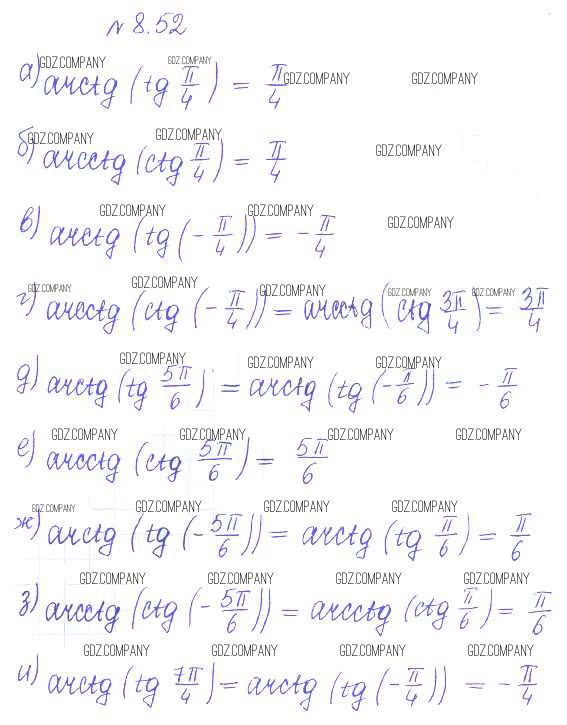 № 8.52
GDZ.COMPANY GDZ.COMPANY GDZ.COMPANY GDZ.COMPANY
а) arctg (tg π/4) = π/4
GDZ.COMPANY GDZ.COMPANY GDZ.COMPANY
б) arcctg (ctg π/4) = π/4
GDZ.COMPANY GDZ.COMPANY GDZ.COMPANY
в) arctg (tg (- π/4)) = - π/4
GDZ.COMPANY GDZ.COMPANY GDZ.COMPANY GDZ.COMPANY GDZ.COMPANY
г) arcctg (ctg (- π/4)) = arcctg (ctg 3π/4) = 3π/4
GDZ.COMPANY GDZ.COMPANY GDZ.COMPANY
д) arctg (tg 5π/6) = arctg (tg (- π/6)) = - π/6
GDZ.COMPANY GDZ.COMPANY GDZ.COMPANY GDZ.COMPANY
е) arcctg (ctg 5π/6) = 5π/6
GDZ.COMPANY GDZ.COMPANY GDZ.COMPANY GDZ.COMPANY
ж) arctg (tg (- 5π/6)) = arctg (tg π/6) = π/6
GDZ.COMPANY GDZ.COMPANY GDZ.COMPANY GDZ.COMPANY
з) arcctg (ctg (- 5π/6)) = arcctg (ctg π/6) = π/6
GDZ.COMPANY GDZ.COMPANY GDZ.COMPANY GDZ.COMPANY
и) arctg (tg 7π/4) = arctg (tg (- π/4)) = - π/4